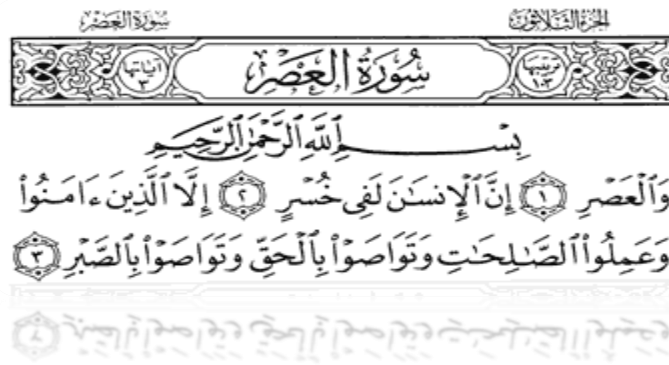 الجزء الثلاثون سورة العصر
ترتيبها ١٠٣ سُورَةُ العَصْرِ آياتها ٣
بِسْمِ ٱللَّهِ ٱلرَّحْمَٰنِ ٱلرَّحِيمِ
وَٱلْعَصْرِ ١ إِنَّ ٱلْإِنسَٰنَ لَفِى خُسْرٍ ٢ إِلَّا ٱلَّذِينَ ءَامَنُوا۟
وَعَمِلُوا۟ ٱلصَّٰلِحَٰتِ وَتَوَاصَوْا۟ بِٱلْحَقِّ وَتَوَاصَوْا۟ بِٱلصَّبْرِ ٣